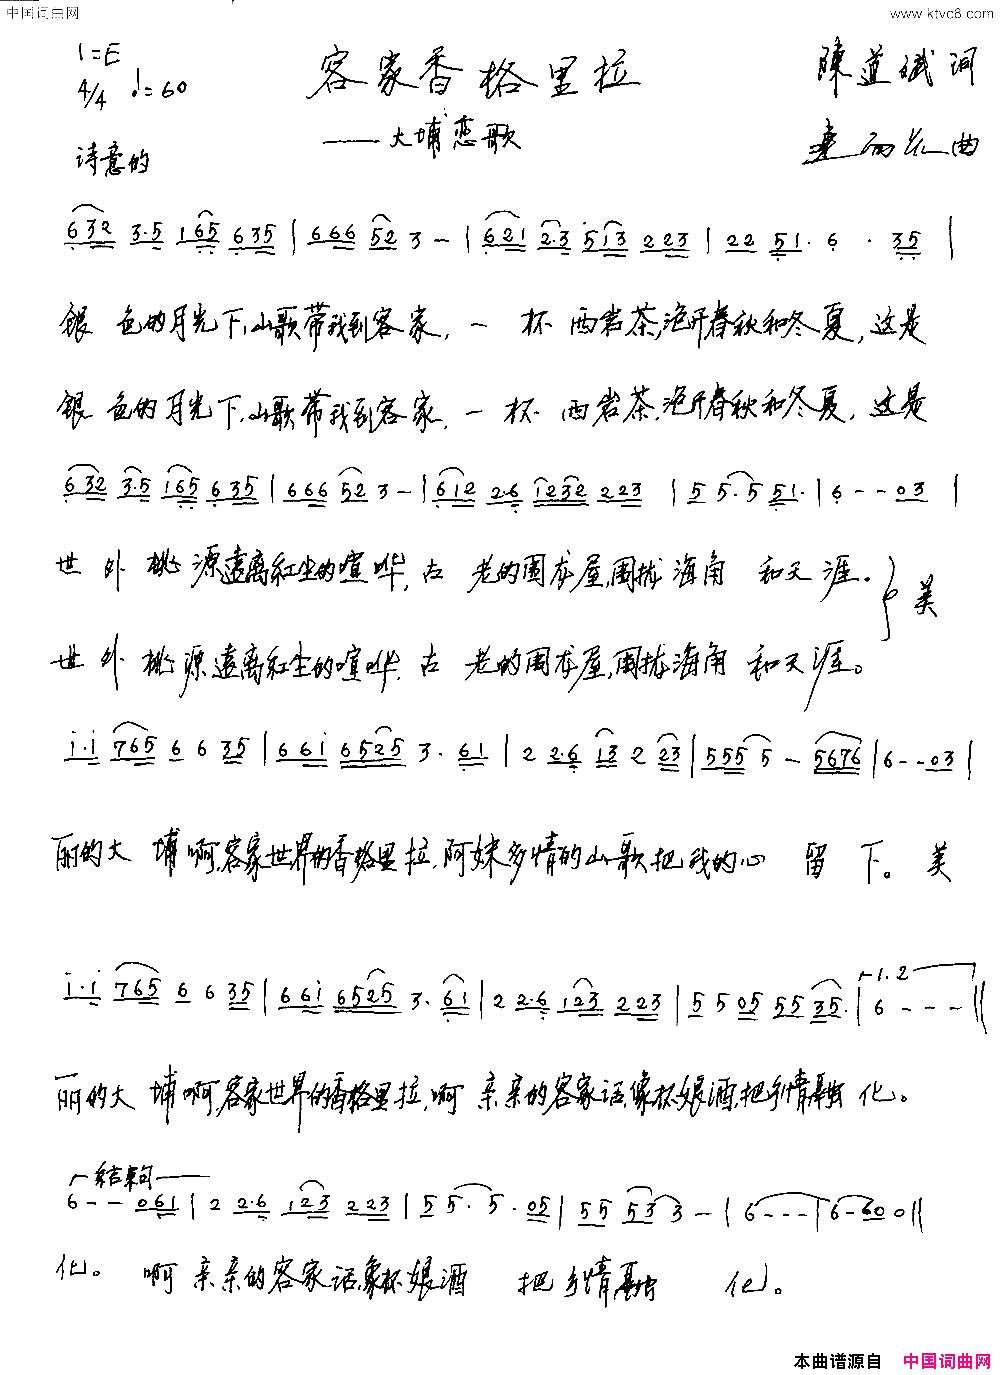 中国词曲网 www.ktvc8.com
1=E 客家香格里拉 陳道斌 词
4/4 ♩=60 ——大埔恋歌 曲
诗意的
6 3 2 3·5 1 6 5 6 3 5 | 6 6 6 5 2 3 — | 6 2 1 2·3 5 1 3 2 2 3 | 2 2 5 1· 6 · 3 5 |
銀 色的月光下,山歌带我到客家,一 杯 西岩茶,泡开春秋和冬夏,这是
銀 色的月光下,山歌带我到客家,一 杯 西岩茶,泡开春秋和冬夏,这是
6 3 2 3·5 1 6 5 6 3 5 | 6 6 6 5 2 3 — | 6 1 2 2·6 1 2 3 2 2 2 3 | 5 5·5 5 1· | 6 - - 0 3 |
世 外 桃 源遠离紅尘的喧哗,古 老的围龙屋,围拢海角 和天涯. 美
世 外 桃 源遠离紅尘的喧哗,古 老的围龙屋,围拢海角 和天涯。
i·i 7 6 5 6 6 3 5 | 6 6 i 6 5 2 5 3· 6 1 | 2 2·6 1 3 2 2 3 | 5 5 5 5 — 5 6 7 6 | 6 - - 0 3 |
丽的大 埔啊,客家世界的香格里拉,阿妹多情的山歌把我的心 留 下。美
i·i 7 6 5 6 6 3 5 | 6 6 i 6 5 2 5 3· 6 1 | 2 2·6 1 2 3 2 2 3 | 5 5 0 5 5 5 3 5· | 1.2 6 - - - ||
丽的大 埔啊,客家世界的香格里拉,啊 亲亲的客家话,像杯娘酒,把乡情融 化。
结束句
6 - - 0 6 1 | 2 2·6 1 2 3 2 2 3 | 5 5· 5· 0 5 | 5 5 5 3 3 — | 6 - - - | 6 - 6 0 0 ||
化。 啊 亲亲的客家话,像杯娘酒 把乡情融 化。
本曲谱源自 中国词曲网